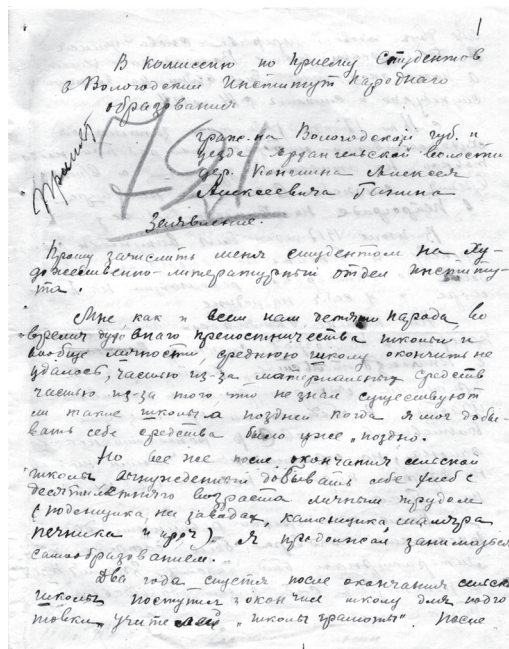 1
В комиссию по приему студентов
в Вологодский Институт Народного
образования
принят
791
граж-на Вологодской губ. и
уезда Архангельской волости
дер. Коншина Алексея
Алексеевича Ганина
Заявление.
Прошу зачислить меня студентом на ху-
дожественно-литературный отдел институ-
та.
Мне, как и всем нам детям народа, во
время духовнаго крепостничества школы и
вообще личности, среднюю школу окончить не
удалось, частью из-за материальных средств
частью из-за того что не знал существуют
ли такие школы а поздней когда я мог добы-
вать себе средства было уже „поздно.
Но все же после окончания сельской
школы вынужденный добывать себе хлеб с
десятилетняго возраста личным трудом
(поденщика, на заводах, каменщика, столяра
печника и проч.) я продолжал заниматься
самообразованием.
Два года спустя после окончания сельск
школы поступил и окончил школу для подго
товки учителей „школы грамоты". После